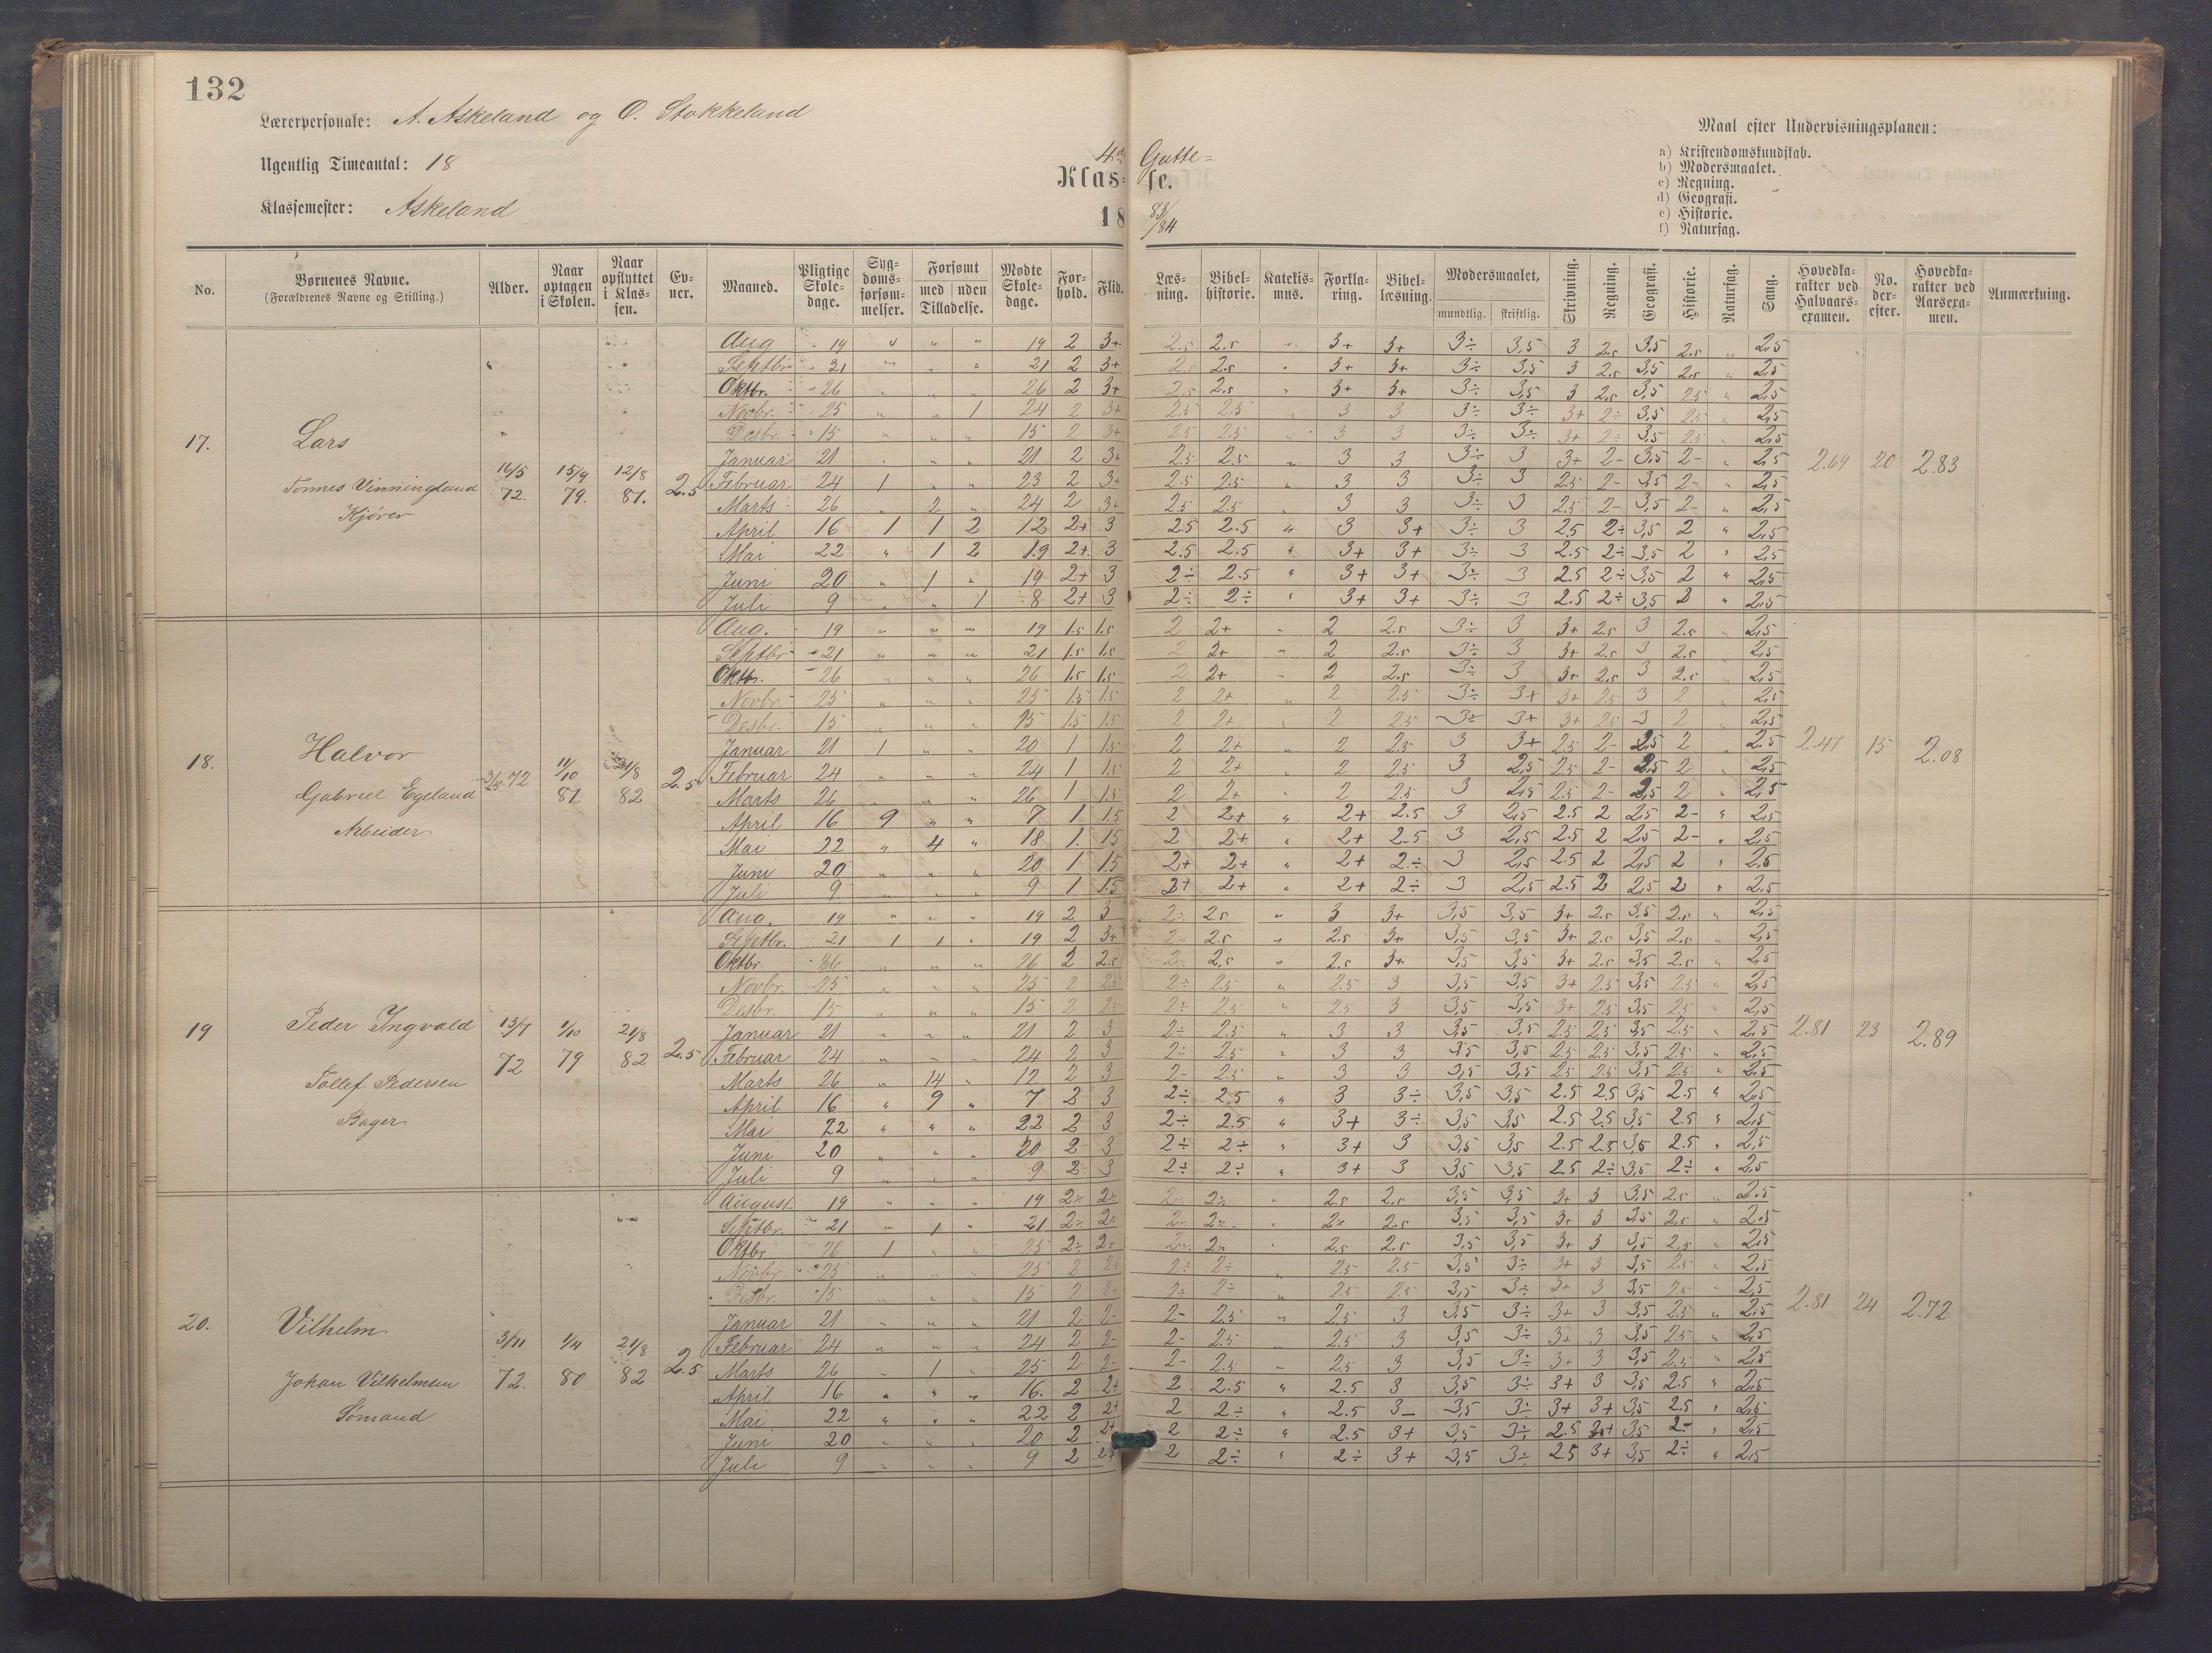 132
Lærerpersonale: A. Askeland og O. Stokkeland
Ugentlig Timeantal: 18
Klassemester: Askeland
4de Gutte=
Klas=se.
18 83/84
Maal efter Undervisningsplanen:
a) Kristendomskundskab.
b) Modersmaalet.
c) Regning.
d) Geografi.
e) Historie.
f) Naturfag.
No. Børnenes Navne. (Forældrenes Navne og Stilling.) Alder. Naar optagen i Skolen. Naar opflyttet i Klas=sen. Ev=ner. Maaned. Pligtige Skole=dage. Syg=doms=forsøm=melser. Forsømt med uden Tilladelse. Mødte Skole=dage. For=hold. Flid. Læs=ning. Bibel=historie. Katekis=mus. Forkla=ring. Bibel=læsning. Modersmaalet, mundtlig. skriftlig. Skrivning. Regning. Geografi. Historie. Naturfag. Sang. Hovedka=rakter ved Halvaars=examen. No. der=efter. Hovedka=rakter ved Aarsexa=men. Anmærkning.
17. Lars
Tønnes Vinningland
Kjører
16/5 72. 15/9 79. 12/8 81. 2.5
Aug 19 " " " 19 2 3+ 2.5 2.5 " 3+ 3+ 3÷ 3,5 3 2.5 3,5 2.5 " 2,5
Septbr. 21 " " " 21 2 3+ 2.5 2.5 " 3+ 3+ 3÷ 3,5 3 2.5 3,5 2.5 " 2,5
Oktbr. 26 " " " 26 2 3+ 2.5 2.5 " 3+ 3+ 3÷ 3,5 3 2.5 3,5 2.5 " 2,5
Novbr. 25 " " 1 24 2 3+ 2.5 2.5 " 3 3 3÷ 3÷ 3+ 2÷ 3,5 2.5 " 2,5
Desbr. 15 " " " 15 2 3+ 2.5 2.5 " 3 3 3÷ 3÷ 3+ 2÷ 3,5 2.5 " 2,5
Januar 21 " " " 21 2 3+ 2.5 2.5 " 3 3 3÷ 3 3+ 2- 3,5 2- " 2,5 2.69 20 2.83
Februar 24 1 " " 23 2 3+ 2.5 2.5 " 3 3 3÷ 3 2.5 2- 3,5 2- " 2,5
Marts 26 " 2 " 24 2 3+ 2.5 2.5 " 3 3 3÷ 3 2.5 2- 3,5 2- " 2,5
April 16 1 1 2 12 2+ 3 2.5 2.5 " 3 3+ 3÷ 3 2.5 2÷ 3,5 2 " 2,5
Mai 22 " 1 2 19 2+ 3 2.5 2.5 " 3+ 3+ 3÷ 3 2.5 2÷ 3,5 2 " 2,5
Juni 20 " 1 " 19 2+ 3 2÷ 2.5 " 3+ 3+ 3÷ 3 2.5 2÷ 3,5 2 " 2,5
Juli 9 " " 1 8 2+ 3 2÷ 2÷ " 3+ 3+ 3÷ 3 2.5 2÷ 3,5 2 " 2,5
18. Halvor
Gabriel Egeland
Arbeider
3/5 72 11/10 81. 21/8 82 2.5
Aug. 19 " " " 19 1.5 1.5 2 2+ " 2 2.5 3÷ 3 3+ 2.5 3 2.5 " 2,5
Septbr 21 " " " 21 1.5 1.5 2 2+ " 2 2.5 3÷ 3 3+ 2.5 3 2.5 " 2,5
Oktbr. 26 " " " 26 1.5 1.5 2 2+ " 2 2.5 3÷ 3 3+ 2.5 3 2.5 " 2,5
Novbr. 25 " " " 25 1.5 1.5 2 2+ " 2 2.5 3÷ 3+ 3+ 2.5 3 2 " 2,5
Desbr. 15 " " " 15 1.5 1.5 2 2+ " 2 2.5 3÷ 3+ 3+ 2.5 3 2 " 2,5
Januar 21 1 " " 20 1 1.5 2 2+ " 2 2.5 3 3+ 2.5 2- 2,5 2 " 2.5 2.47 15 2.08
Februar 24 " " " 24 1 1.5 2 2+ " 2 2.5 3 2,5 2.5 2- 2,5 2 " 2,5
Marts 26 " " " 26 1 1.5 2 2+ " 2 2.5 3 2,5 2.5 2- 2,5 2 " 2,5
April 16 9 " " 7 1 1.5 2 2+ " 2+ 2.5 3 2,5 2.5 2 2,5 2- " 2,5
Mai 22 " 4 " 18 1. 15 2 2+ " 2+ 2.5 3 2,5 2.5 2 2,5 2- " 2,5
Juni 20 " " " 20 1 1.5 2+ 2+ " 2+ 2÷ 3 2,5 2.5 2 2,5 2 " 2,5
Juli 9 " " " 9 1 1.5 2+ 2+ " 2+ 2÷ 3 2,5 2.5 2 2,5 2 " 2.5
19 Peder Ingvald
Tollef Pedersen
Bager
13/7 72 1/10 79 21/8 82 2.5
Aug. 19 " " " 19 2 3 2÷ 2.5 " 3 3+ 3,5 3,5 3+ 2.5 3,5 2.5 " 2,5
Septbr. 21 1 1 " 19 2 3+ 2÷ 2.5 " 2.5 3+ 3,5 3,5 3+ 2.5 3,5 2.5 " 2,5
Oktbr. 26 " " " 26 2 2.5 2÷ 2.5 " 2.5 3+ 3,5 3,5 3+ 2.5 3,5 2.5 " 2,5
Novbr. 25 " " " 25 2 2.5 2÷ 2.5 " 2.5 3 3,5 3,5 3+ 2.5 3,5 2.5 " 2,5
Desbr. 15 " " " 15 2 2.5 2÷ 2.5 " 2.5 3 3,5 3,5 3+ 2.5 3,5 2.5 " 2,5
Januar 21 " " " 21 2 3 2÷ 2.5 " 3 3 3,5 3,5 2.5 2.5 3,5 2.5 " 2.5 2.81 23 2.89
Februar 24 " " " 24 2 3 2÷ 2.5 " 3 3 3,5 3,5 2.5 2.5 3,5 2.5 " 2,5
Marts 26 " 14 " 12 2 3 2- 2.5 " 3 3 3,5 3,5 2.5 2.5 3,5 2.5 " 2.5
April 16 " 9 " 7 2 3 2÷ 2.5 " 3 3÷ 3,5 3,5 2.5 2.5 3,5 2.5 " 2,5
Mai 22 " " " 22 2 3 2÷ 2.5 " 3+ 3÷ 3,5 3,5 2.5 2.5 3,5 2.5 " 2,5
Juni 20 " " " 20 2 3 2÷ 2÷ " 3+ 3 3,5 3,5 2.5 2.5 3,5 2.5 " 2,5
Juli 9 " " " 9 2 3 2÷ 2÷ " 3+ 3 3,5 3,5 2.5 2÷ 3,5 2÷ " 2,5
20. Vilhelm
Johan Vilhelmsen
Sømand
3/11 72. 1/4 80 21/8 82 2.5
August 19 " " " 19 2÷ 2÷ 2÷ 2÷ " 2.5 2.5 3,5 3,5 3+ 3 3,5 2.5 " 2.5
Septbr. 21 " 1 " 21 2÷ 2÷ 2÷ 2÷ " 2÷ 2.5 3,5 3,5 3+ 3 3,5 2.5 " 2,5
Oktbr 26 1 " " 25 2÷ 2÷ 2÷ 2÷ " 2.5 2.5 3,5 3,5 3+ 3 3,5 2.5 " 2,5
Novbr. 25 " " " 25 2 2÷ 2÷ 2÷ " 2.5 2.5 3,5 3÷ 3+ 3 3,5 2.5 " 2,5
Desbr. 15 " " " 15 2 2÷ 2÷ 2÷ " 2.5 2.5 3,5 3÷ 3+ 3 3,5 2.5 " 2,5
Januar 21 " " " 21 2 2- 2- 2.5 " 2.5 3 3,5 3÷ 3+ 3 3,5 2.5 " 2,5 2.81 24 2.72
Februar 24 " " " 24 2 2- 2- 2.5 " 2.5 3 3,5 3÷ 3+ 3 3,5 2.5 " 2,5
Marts 26 " 1 " 25 2 2- 2- 2.5 " 2.5 3 3,5 3÷ 3+ 3 3,5 2.5 " 2,5
April 16 " " " 16. 2 2+ 2 2.5 " 2.5 3 3,5 3÷ 3+ 3 3,5 2.5 " 2,5
Mai 22 " " " 22 2 2+ 2 2÷ " 2.5 3- 3,5 3÷ 3+ 3+ 3,5 2.5 " 2,5
Juni 20 " " " 20 2 2+ 2 2÷ " 2.5 3+ 3,5 3÷ 2.5 3+ 3,5 2- " 2,5
Juli 9 " " " 9 2 2+ 2 2÷ " 2÷ 3+ 3,5 3÷ 2.5 3+ 3,5 2÷ " 2,5